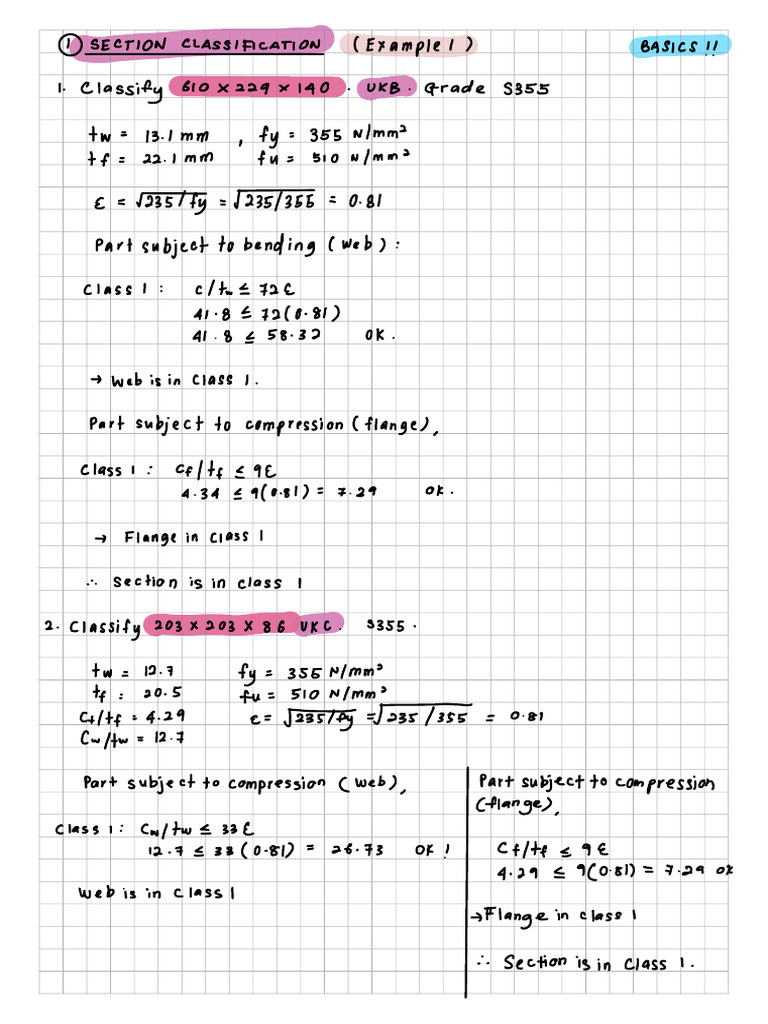 ① SECTION CLASSIFICATION (Example 1) BASICS !!
1. Classify 610 x 229 x 140 . UKB . Grade S355
tw = 13.1 mm , fy = 355 N/mm²
tf = 22.1 mm fu = 510 N/mm²
ε = √235/fy = √235/355 = 0.81
Part subject to bending (web) :
Class 1 : c/tw ≤ 72ε
41.8 ≤ 72(0.81)
41.8 ≤ 58.32 OK.
→ Web is in class 1.
Part subject to compression (flange),
Class 1 : cf/tf ≤ 9ε
4.34 ≤ 9(0.81) = 7.29 OK.
→ Flange in class 1
∴ Section is in class 1
2. Classify 203 x 203 x 86 UKC. S355.
tw = 12.7 fy = 355 N/mm²
tf : 20.5 fu = 510 N/mm²
Cf/tf = 4.29 ε = √235/fy = √235/355 = 0.81
Cw/tw = 12.7
Part subject to compression (web),
Class 1 : Cw/tw ≤ 33ε
12.7 ≤ 33(0.81) = 26.73 OK!
Web is in class 1
Part subject to compression
(flange),
Cf/tf ≤ 9ε
4.29 ≤ 9(0.81) = 7.29 OK
→ Flange in class 1
∴ Section is in class 1.